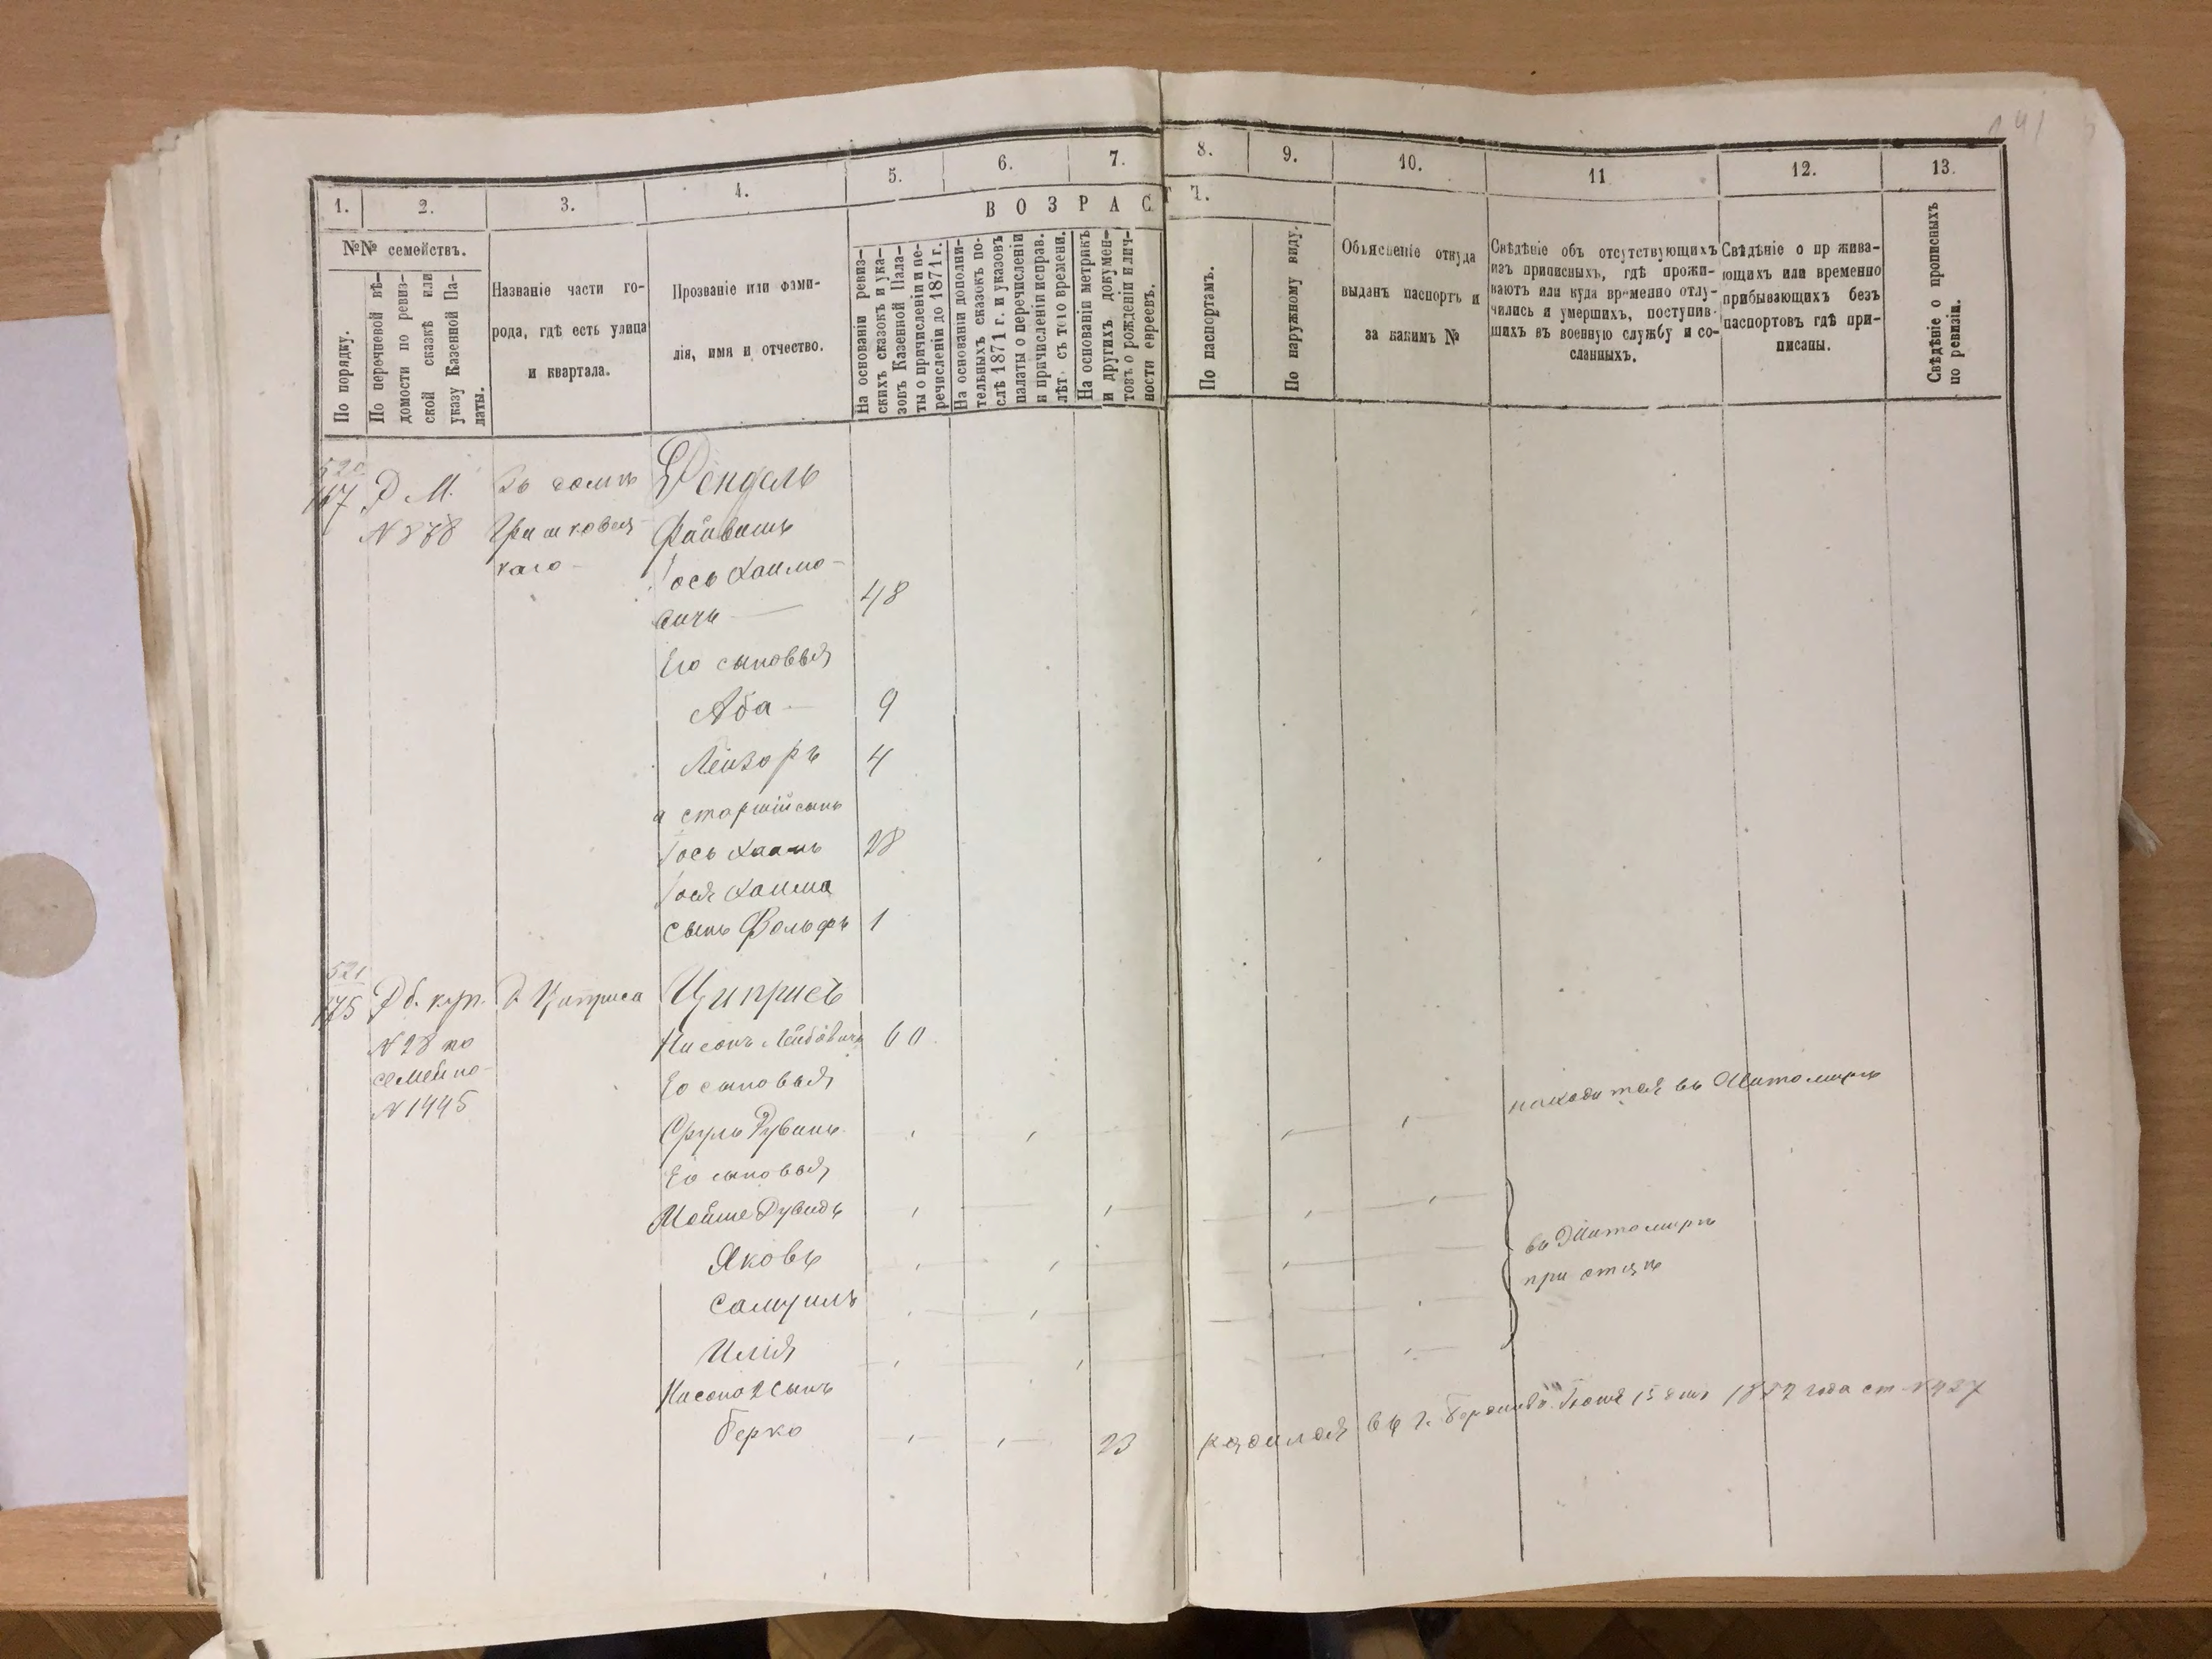 141
1.
2.
3.
4.
5.
6.
7.
8.
9.
10.
11
12.
13.
№№ семействъ.
ВОЗРАСТ
Т.
По порядку.
По перечневой вѣ-
домости по ревиз-
ской сказкѣ или
указу Казенной Па-
латы.
Названіе части го-
рода, гдѣ есть улица
и квартала.
Прозваніе или фами-
лія, имя и отчество.
На основаніи ревиз-
скихъ сказокъ и ука-
зовъ Казенной Пала-
ты о причисленіи и пе-
речисленіи до 1871 г.
На основаніи дополни-
тельныхъ сказокъ по-
слѣ 1871 г. и указовъ
палаты о перечисленіи
и причисленіи исправ.
лѣт съ того времени.
На основаніи метрикъ
и другихъ докумен-
товъ о рожденіи и лич-
ности евреевъ.
По паспортамъ.
По наружному виду.
Объясненіе откуда
выданъ паспортъ и
за какимъ №
Свѣдѣніе объ отсутствующихъ
изъ приписныхъ, гдѣ прожи-
ваютъ или куда временно отлу-
чились и умершихъ, поступив-
шихъ въ военную службу и со-
сланныхъ.
Свѣдѣніе о пр жива-
ющихъ или временно
прибывающихъ безъ
паспортовъ гдѣ при-
писаны.
Свѣдѣніе о прописныхъ
по ревизіи.
520
167 Р М. Въ домѣ
№ 878
каго
Файвишъ
Іось Хаимо-
вичъ — 48
Его сыновья
Аба — 9
Лейзоръ 4
а старшій сынъ
Іось Хаимъ 28
Іося Хаима
сынъ Вольфъ 1
521
175 Р б. куп. д. Циприса Циприсъ
№ 28 по Нисонъ Лейбовичъ 60
семейно- Его сыновья
№ 1445
Сруль Рувинъ находится въ Житомирѣ
Его сыновья
Мойше Дувидъ
Яковъ
Самуилъ
Илія
въ Житомирѣ
при отцѣ
Нисона 2 сынъ
Берко 23 родился въ г. 15 дня 18 года ст №